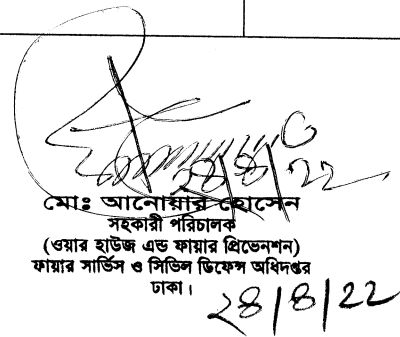 ২৪/৪/22
মোঃ আনোয়ার হোসেন
সহকারী পরিচালক
(ওয়ার হাউজ এন্ড ফায়ার প্রিভেনশন)
ফায়ার সার্ভিস ও সিভিল ডিফেন্স অধিদপ্তর
ঢাকা।
২৪/৪/22